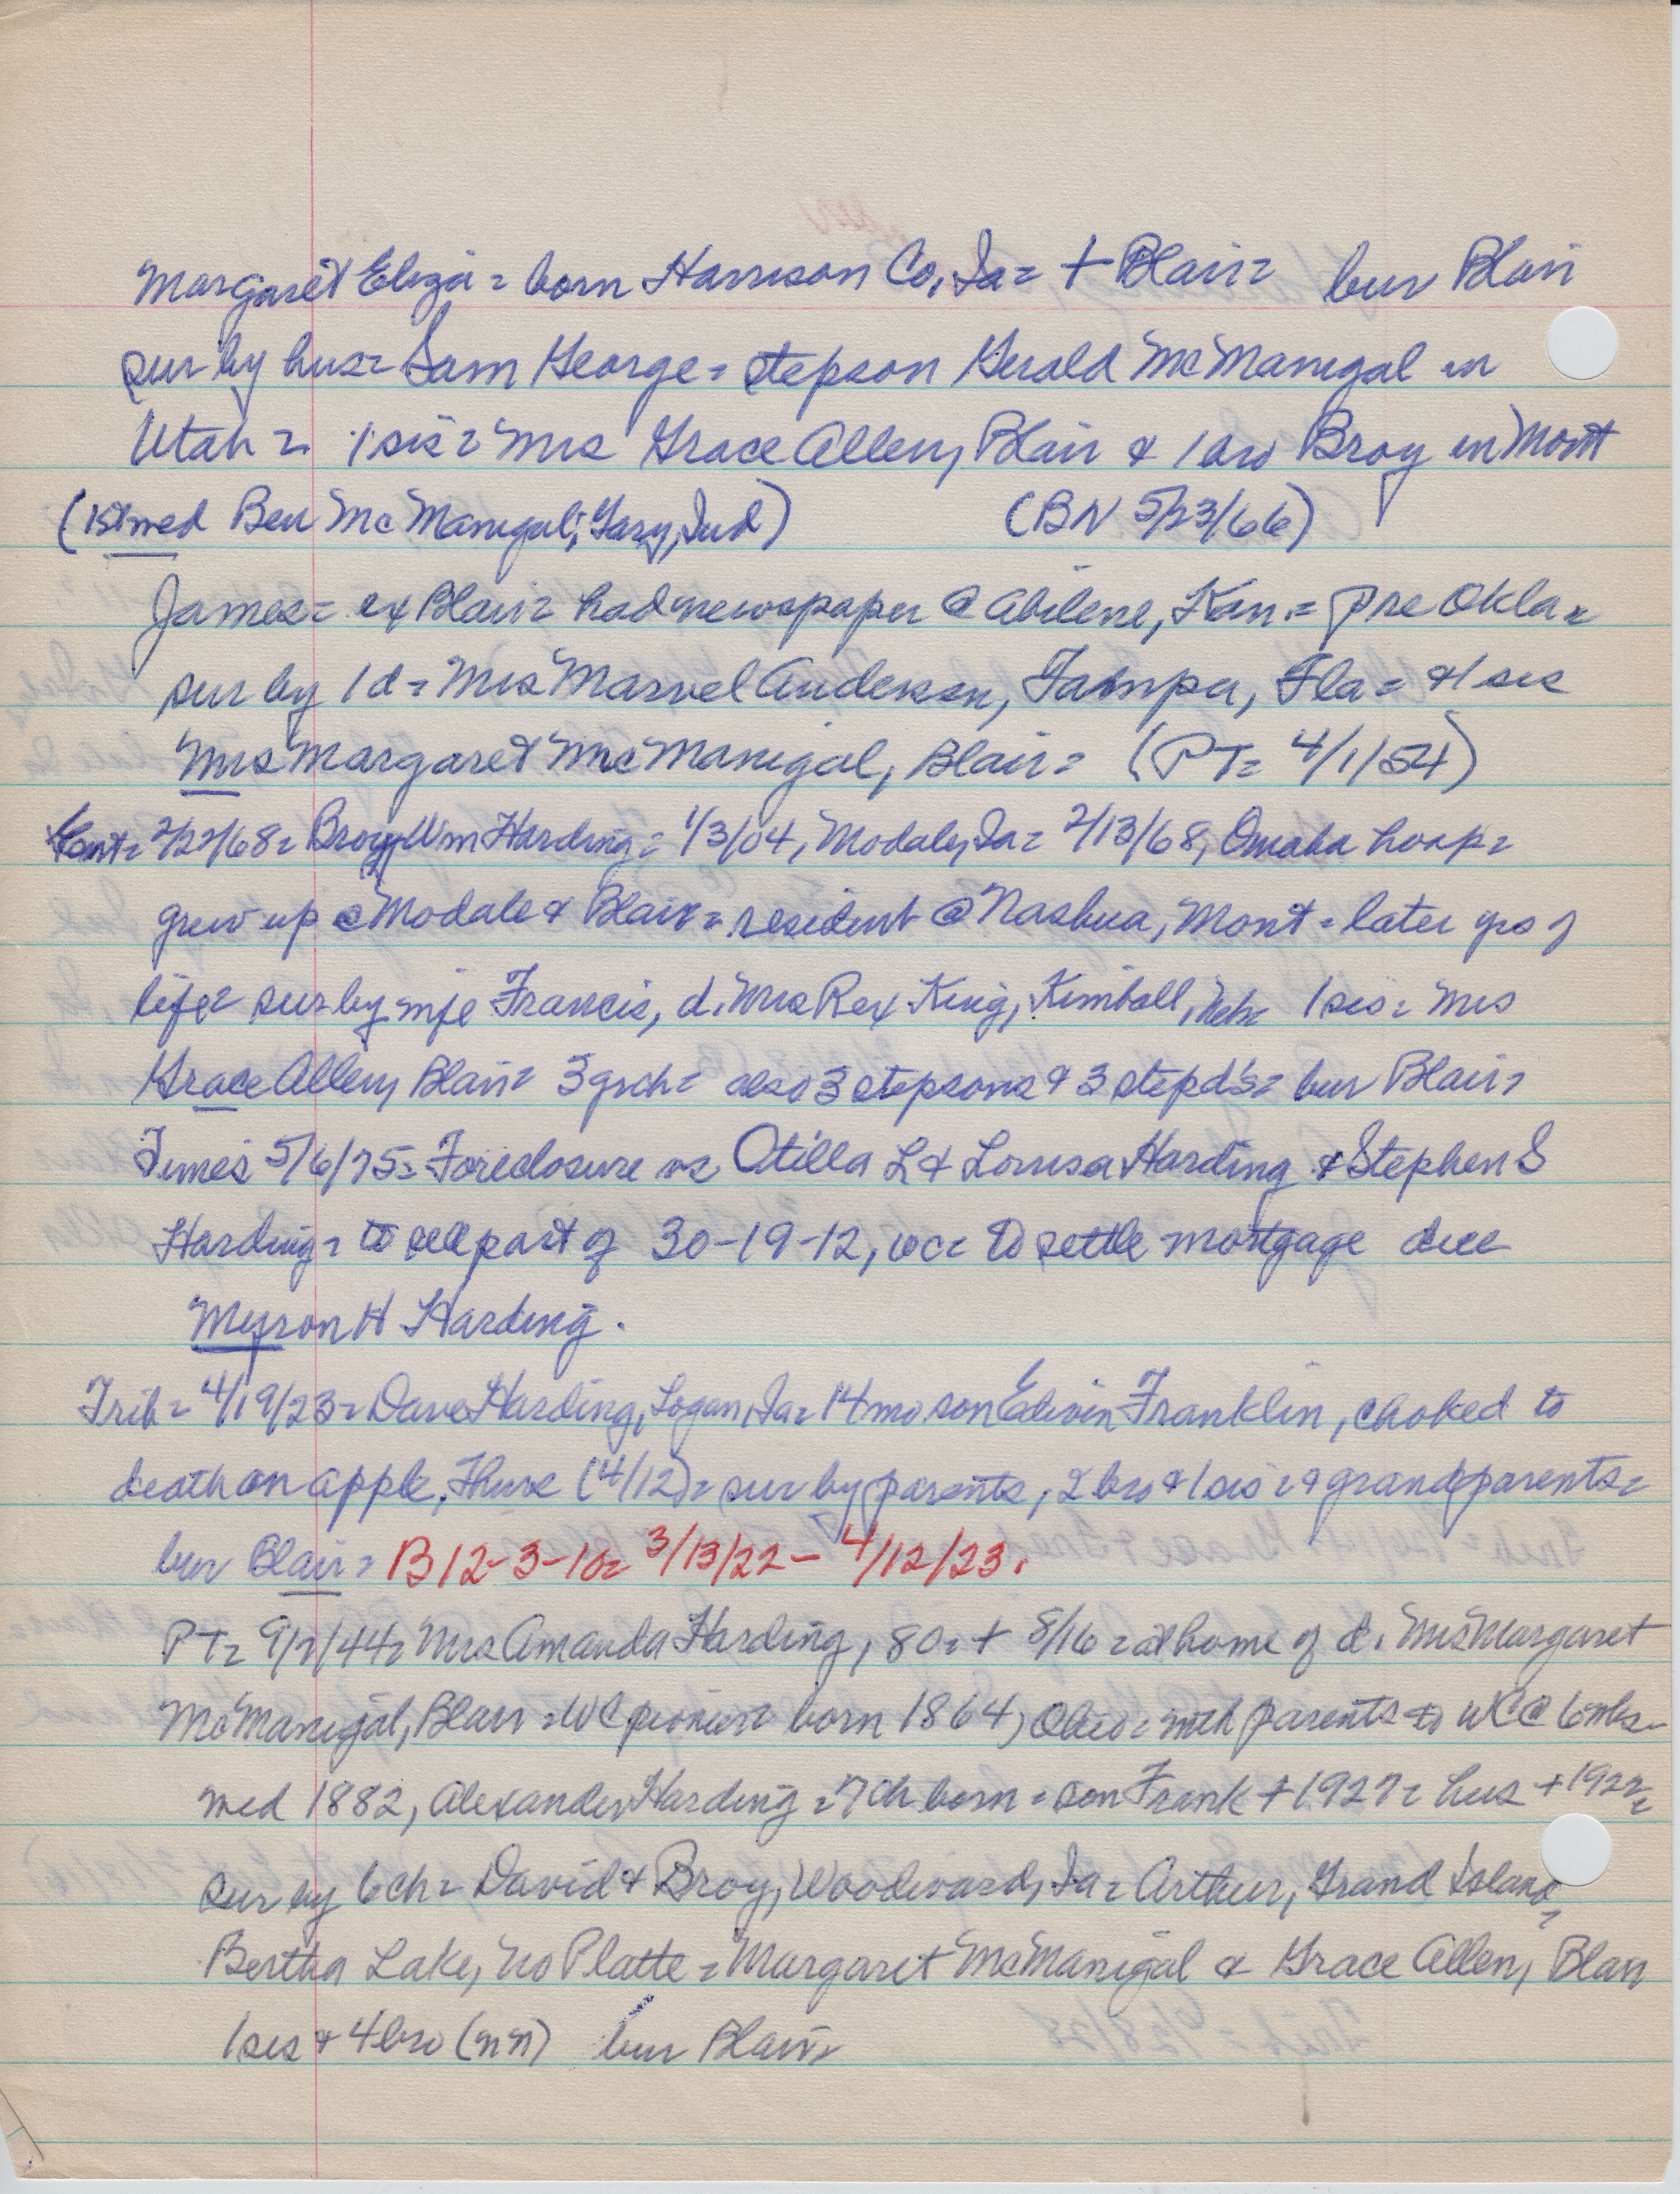 Margaret Eliza = born Harrison Co, Ia = + Blair = bur Blair
sur by hus = Sam George = stepson Gerald McManigal in
Utah = 1 sis = Mrs Grace Allen, Blair & 1 bro Broy in Mont
(1st med Ben McManigal, Gary, Ind) (BN 5/23/66)
James = ex Blair = had newspaper @ Abilene, Kan. = pre Okla =
sur by 1 d = Mrs Marvel Anderson, Tampa, Fla = & 1 sis
Mrs Margaret McManigal, Blair = (PT = 4/1/54)
Ent = 2/22/68 = Broy Wm Harding = 1/3/04, Modale, Ia = 2/13/68, Omaha hosp =
grew up @ Modale & Blair = resident @ Nashua, Mont = later yrs of
life = sur by wife Francis, d. Mrs Rex King, Kimball, Neb = 1 sis = Mrs
Grace Allen, Blair = 3 grch = also 3 stepsons & 3 stepd's = bur Blair =
Times 5/6/75 = Foreclosure vs Otilla L & Lourisa Harding & Stephen S
Harding = to sell part of 30-19-12, wc = to settle mortgage due
Myron H Harding.
Trib = 4/19/23 = Dave Harding, Logan, Ia = 14 mo son Edwin Franklin, choked to
death on apple, Thurs (4/12) = sur by parents, 2 bro & 1 sis = & grandparents =
bur Blair = B12-3-10 = 3/13/22 - 4/12/23.
PT = 9/7/44 = Mrs Amanda Harding, 80 = + 8/16 = at home of d. Mrs Margaret
McManigal, Blair = WC pioneer = born 1864, Ohio = with parents to WC @ 6 wks =
med 1882, Alexander Harding = 7 ch born = son Frank + 1927 = hus + 1922 =
sur by 6 ch = David & Broy, Woodward, Ia = Arthur, Grand Island,
Bertha Lake, No Platte = Margaret McManigal & Grace Allen, Blair
1 sis & 4 bro (nn) bur Blair =